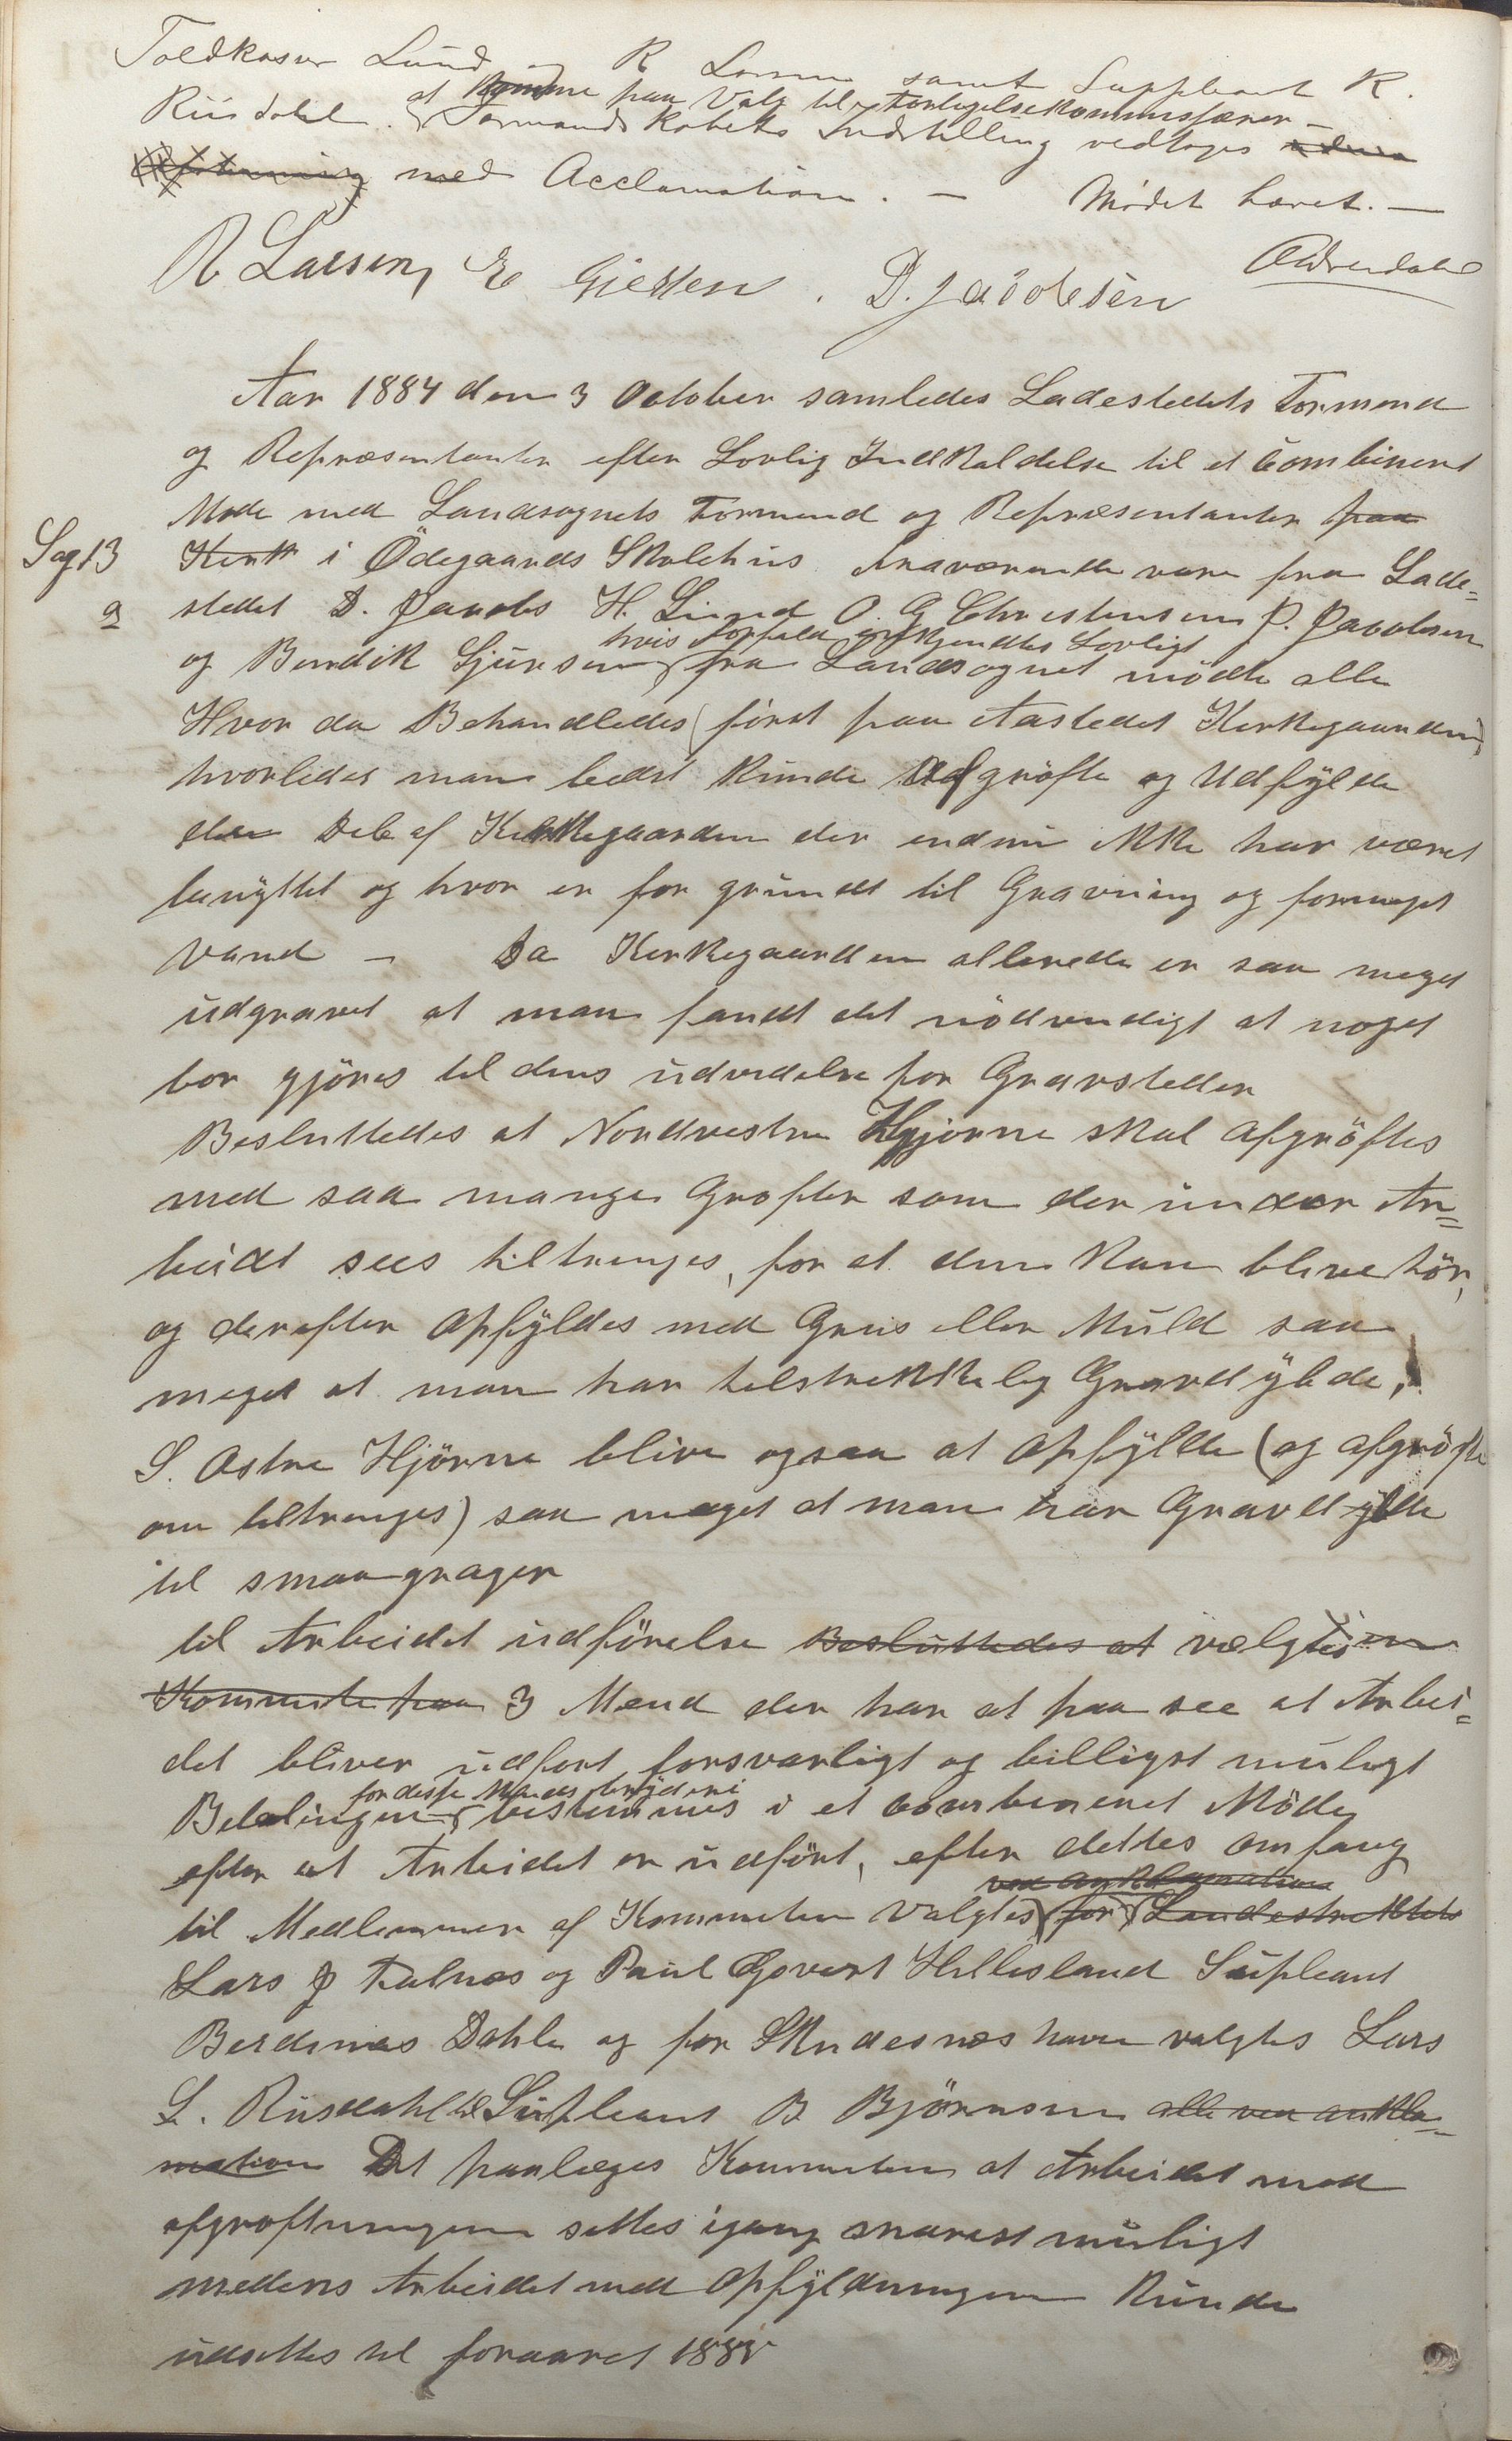 Toldkasser Lund og R Larsen samt Suppleant K.
Riisdahl.
at komme paa Valg til Forligelseskommisærer –
Formandskabets Indstilling vedtages
med Acclamation. – Mödet hævet. –
R Larsen, E Gjessen. D. Jacobsen
Aar 1884 den 3 October samledes Ladestedets Formend
og Repræsentanter efter Lovlig Indkaldelse til et combinert
Møde med Landsognets Formend og Repræsentanter paa
Sag 13
Kirk i Ödegaards Skolehus fraværende vare fra Lade=
a
stedet D. Jacobs H. Lund O. G Christensen P. Jacobsen
hvis forfald ankjendtes Lovligt
og Bendik Sjursen fra Landsognet mödte alle
Hvor da Behandledes (först paa Aastedet Kirkegaarden)
hvorledes man bedst kunde Afgröfte og Udfylde
den Del af Kirkegaarden der endnu ikke har været
benyttet og hvor er for grundt til Gravning og formeget
Vand – Da Kirkegaarden allerede er saa meget
udgravet at man fandt det nödvendigt at noget
bor gjöres til dens udvidelse for Gravsteder
Besluttedes at Nordvestre Hjörne skal Afgröftes
med saa mange Grofter som der under Ar=
beidt sees tiltrenges, for at den kan blive tör,
og derefter Opfyldes med Grus eller Muld saa
meget at man har tilstrekkelig Gravdybde,
S. Ostre Hjörne blive ogsaa at Opfylde (og afgröfte
om tiltrenges) saa meget at man har Gravdybde
til smaagraver
til Arbeidet udförelse Besluttedes at vælgtes en
Kommite paa 3 Mænd der har at paa see at Arbei=
det bliver udfort forsvarligt og billigst muligt
for disse Mænds bryderi
Betalingen bestemmes i et combineret Möde
efter at Arbeidet er udfört, efter dettes omfang
ved anklamation
til Medlemmer af Kommiteen Valgtes for Landestrektets
Lars J Falnæs og Paul Govert Hillesland Supleant
Berdines Dahle og for Skudesneshavn valgtes Lars
L. Riisdahl til Supleant B Björnsen alle ved ankla=
mation Det paalæges Kommiteen at Arbeidet med
afgroftningen settes igang snarest muligt
medens Arbeidet med Opfyldningen kunde
udsettes til foraaret 1885